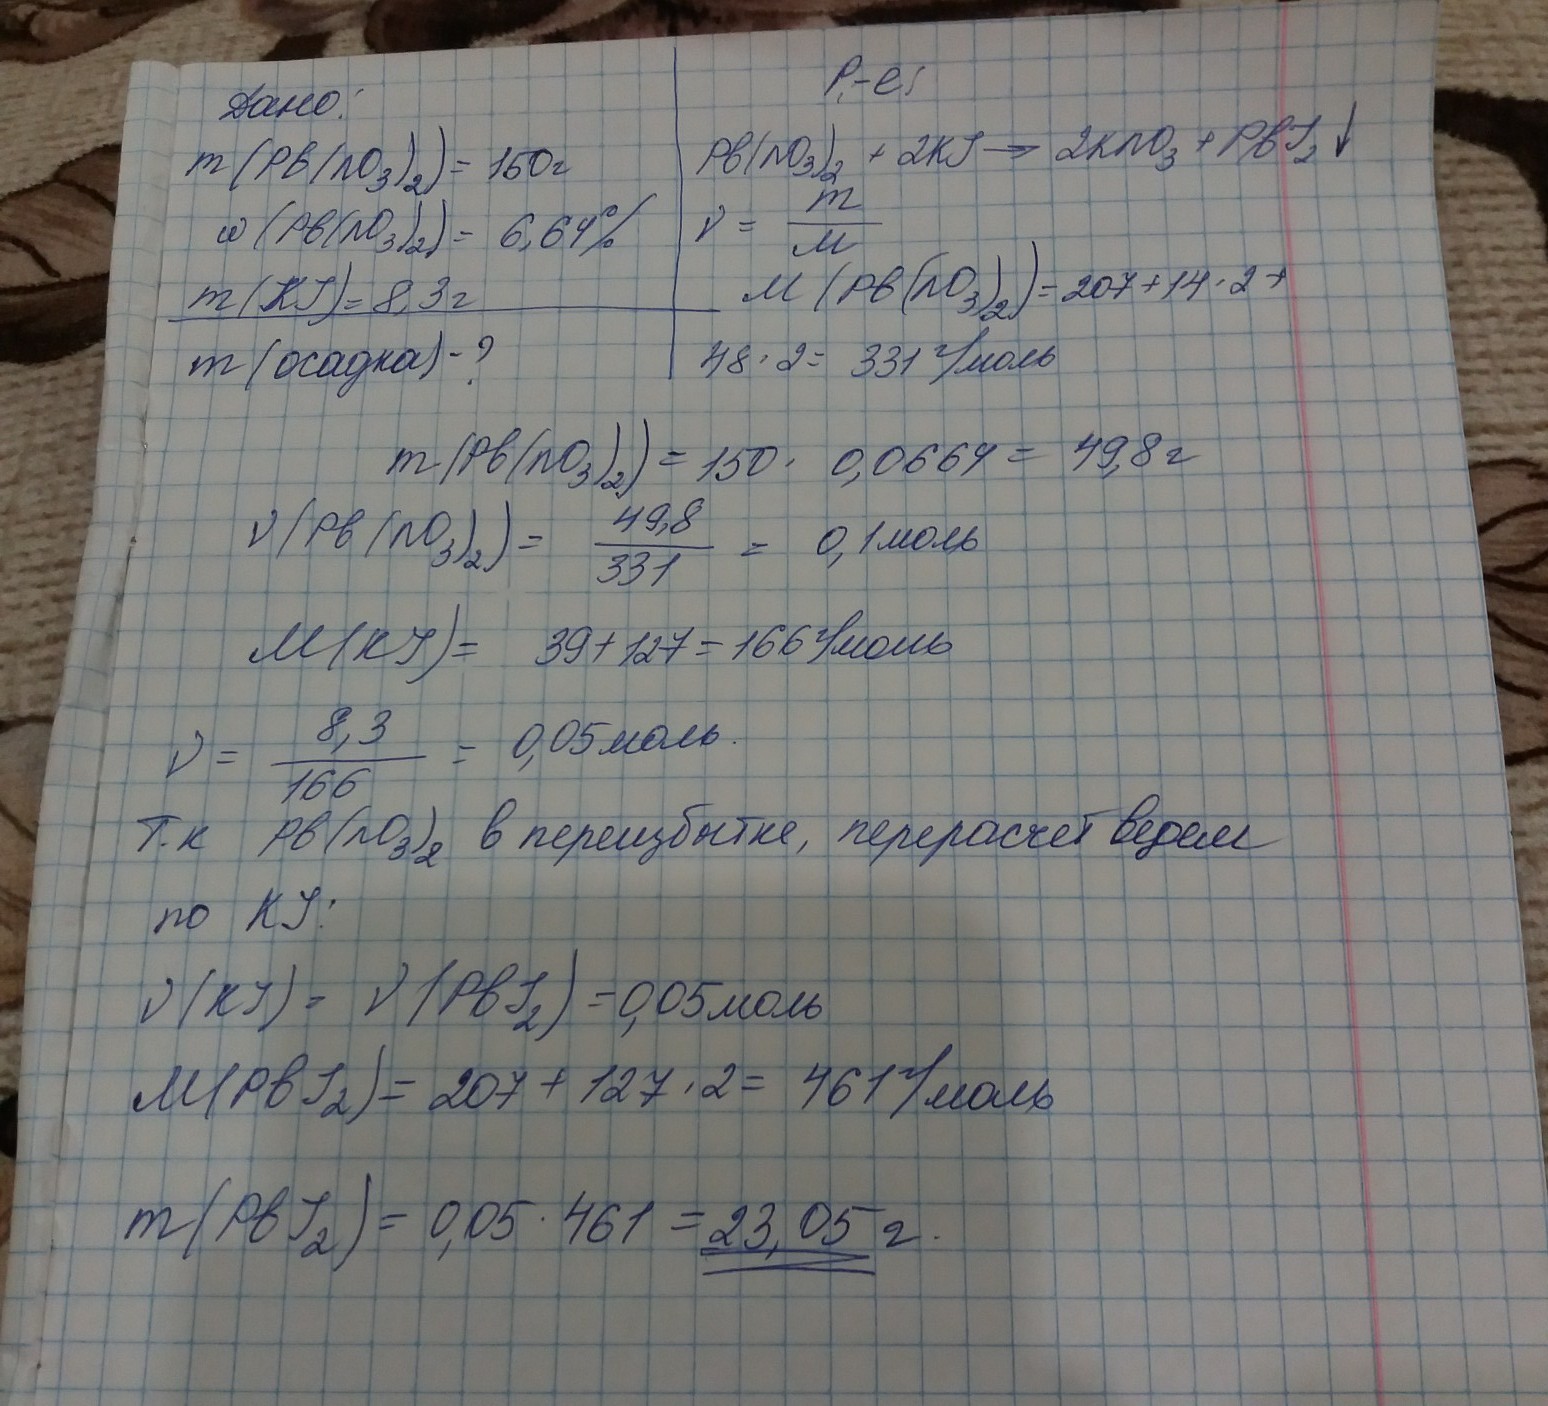 Дано:
m(Pb(NO3)2) = 150г
ω(Pb(NO3)2) = 6,64%
m(KJ) = 8,3г
m(осадка) - ?
Р-е:
Pb(NO3)2 + 2KJ → 2KNO3 + PbJ2↓
ν = m/M
M(Pb(NO3)2) = 207 + 14 · 2 +
48 · 2 = 331 г/моль
m(Pb(NO3)2) = 150 · 0,0664 = 49,8г
ν(Pb(NO3)2) = 49,8/331 = 0,1 моль
M(KJ) = 39 + 127 = 166 г/моль
ν = 8,3/166 = 0,05 моль.
Т.к Pb(NO3)2 в переизбытке, перерасчет ведем
по KJ:
ν(KJ) = ν(PbJ2) = 0,05 моль
M(PbJ2) = 207 + 127 · 2 = 461 г/моль
m(PbJ2) = 0,05 · 461 = 23,05 г.